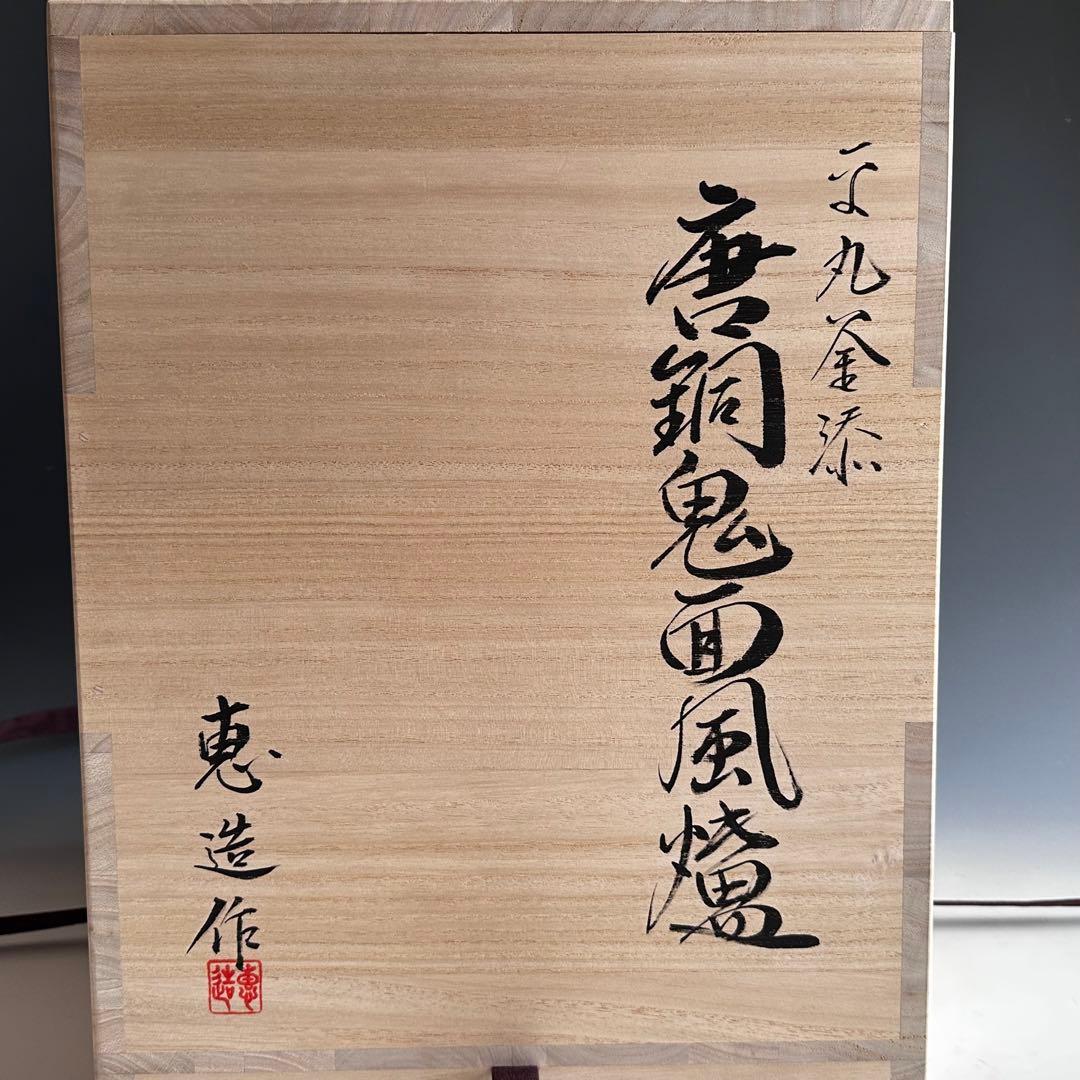 平丸釜添
唐銅鬼面風爐
恵造作
恵造